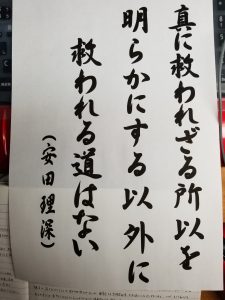 真に救われざる所以を
明らかにする以外に
救われる道はない
(安田理深)